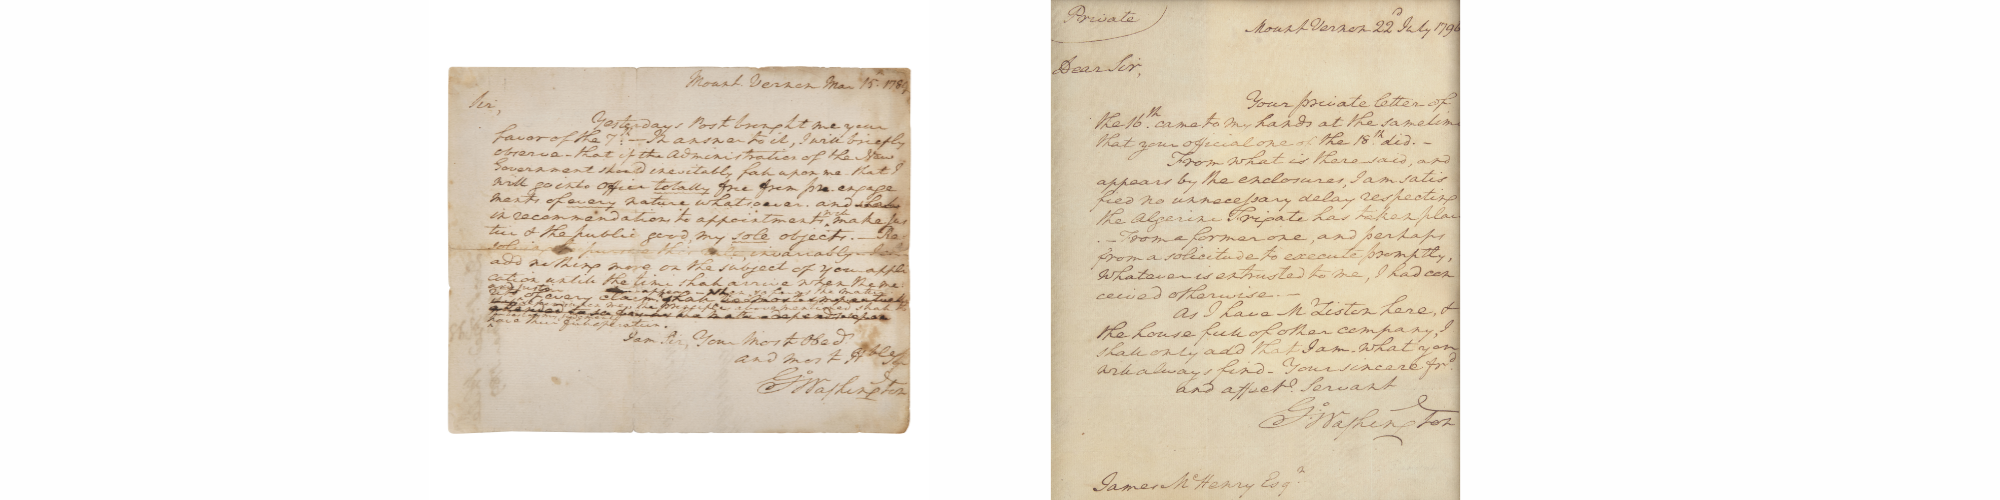 Mount Vernon Mar 15th 1789
Sir,
Yesterdays Post brought me your
favor of the 7th — In answer to it, I will briefly
observe – that if the Administration of the New
Government should inevitably fall upon me – that I
will go into office totally free from pre engage
ments of every nature whatsoever. and
in recommendations to appointments make jus
tice & the public good, my sole objects. — Re
invariably
add nothing more on the subject of your appli
cation until the time shall arrive when the me
of every claim
have their full operation.
I am Sir, Your Most Obedt
and most Hble
Go Washington
Private
Mount Vernon 22d July 1796
Dear Sir,
Your private letter of
the 16th came to my hands at the same time
that your official one of the 18th did. –
From what is there said, and
appears by the enclosures, I am satis
fied no unnecessary delay respecting
the Algerine Frigate has taken place
. – From a former one, and perhaps
from a solicitude to execute promptly,
whatever is entrusted to me, I had con
ceived otherwise. –
As I have Mr Liston here, &
the house full of other company, I
shall only add that I am what you
will always find – Your sincere frd
and affecte Servant
Go Washington
James McHenry Esqr